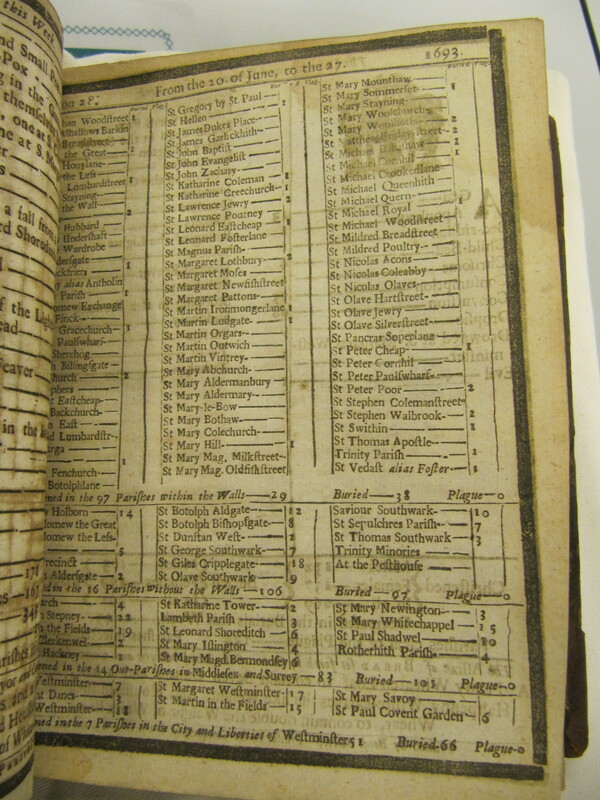 this Week
From the 20. of June, to the 27. 1693.
Buried Plag.
ban Woodstreet 1
alhallows Barkin
Breadstreet
the Great 1
Honylane
the Less
Lombardstreet 1
Stayning
the Wall
2
Hubbard
Undershaft
Wardrobe
dersgate 1
ackfriers 1
y alias Antholin
Parish 1
omew Exchange
Finck
Gracechurch 1
Paulswharf
Sherehog
n Billingsgate
hurch 2
Eastcheap
Backchurch
n East
d Lumbardstr-
1
Fenchurch
Botolphlane
St Gregory by St. Paul 1
St Hellen
St James Dukes Place
St James Garlickhith
St John Baptist
St John Evangelist
St John Zachary
St Katharine Coleman 1
St Katharine Creechurch 1
St Lawrence Jewry 2
St Lawrence Poutney
St Leonard Eastcheap 1
St Leonard Fosterlane
St Magnus Parish
St Margaret Lothbury 2
St Margaret Moses
St Margaret Newfishstreet
St Margaret Pattons
St Martin Ironmongerlane 1
St Martin Ludgate 1
St Martin Orgars
St Martin Outwich
St Martin Vintrey
St Mary Abchurch
St Mary Aldermanbury
St Mary Aldermary
St Mary-le-Bow
St Mary Bothaw
St Mary Colechurch
St Mary Hill 1
St Mary Mag. Milkstreet
St Mary Mag. Oldfishstreet
St Mary Mounthaw
St Mary Sommerset 1
St Mary Stayning
St Mary Woolchurch
St Mary Woolnoth 2
St Matthew Fridaystreet 2
St Michael Bassishaw 1
St Michael Cornhil 1
St Michael Crookedlane
St Michael Queenhith
St Michael Quern
St Michael Royal 1
St Michael Woodstreet
St Mildred Breadstreet
St Mildred Poultry
St Nicolas Acons
St Nicolas Coleabby
St Nicolas Olaves
St Olave Hartstreet
St Olave Jewry
St Olave Silverstreet
St Pancras Soperlane
St Peter Cheap 1
St Peter Cornhil
St Peter Paulswharf
St Peter Poor 2
St Stephen Colemanstreet
St Stephen Walbrook 2
St Swithin 1
St Thomas Apostle
Trinity Parish 1
St Vedast alias Foster 1
ned in the 97 Parishes within the Walls 29 Buried 38 Plague 0
Holborn 14
olomew the Great
lomew the Less
5
recinct
Aldersgate 2
St Botolph Aldgate 12
St Botolph Bishopsgate 8
St Dunstan West 2
St George Southwark 7
St Giles Cripplegate 18
St Olave Southwark 9
Saviour Southwark 10
St Sepulchres Parish 7
St Thomas Southwark 3
Trinity Minories
At the Pesthouse
ed in the 16 Parishes without the Walls 106 Buried 97 Plague 0
urch 4
Stepney 22
the Fields 19
Clerkenwel 2
Hackney 1
St Katharine Tower 2
Lambeth Parish 3
St Leonard Shoreditch 6
St Mary Islington 4
St Mary Magd. Bermondsey 6
St Mary Newington 3
St Mary Whitechappel 15
St Paul Shadwel 10
Rotherhith Parish 4
ened in the 14 Out-Parishes in Middlesex and Surrey 83 Buried 103 Plague 0
Westminster 7
t Danes 3
Westminster 18
St Margaret Westminster 17
St Martin in the Fields 15
St Mary Savoy
St Paul Covent Garden 6
ned in the 7 Parishes in the City and Liberties of Westminster 51 Buried 66 Plague 0